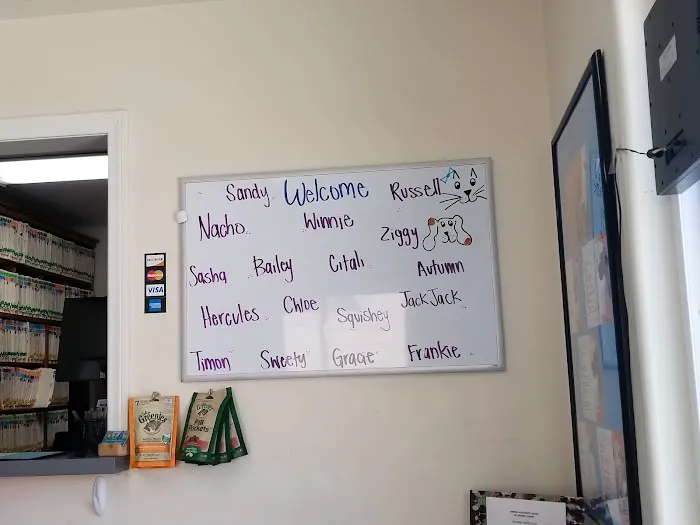 Sandy Welcome Russell
Nacho Winnie
Ziggy
Sasha Bailey Citali Autumn
Hercules Chloe Squishey JackJack
Timon Sweety Gracie Frankie
DISCOVER
MasterCard
VISA
Greenies
Greenies
Pill
Pockets